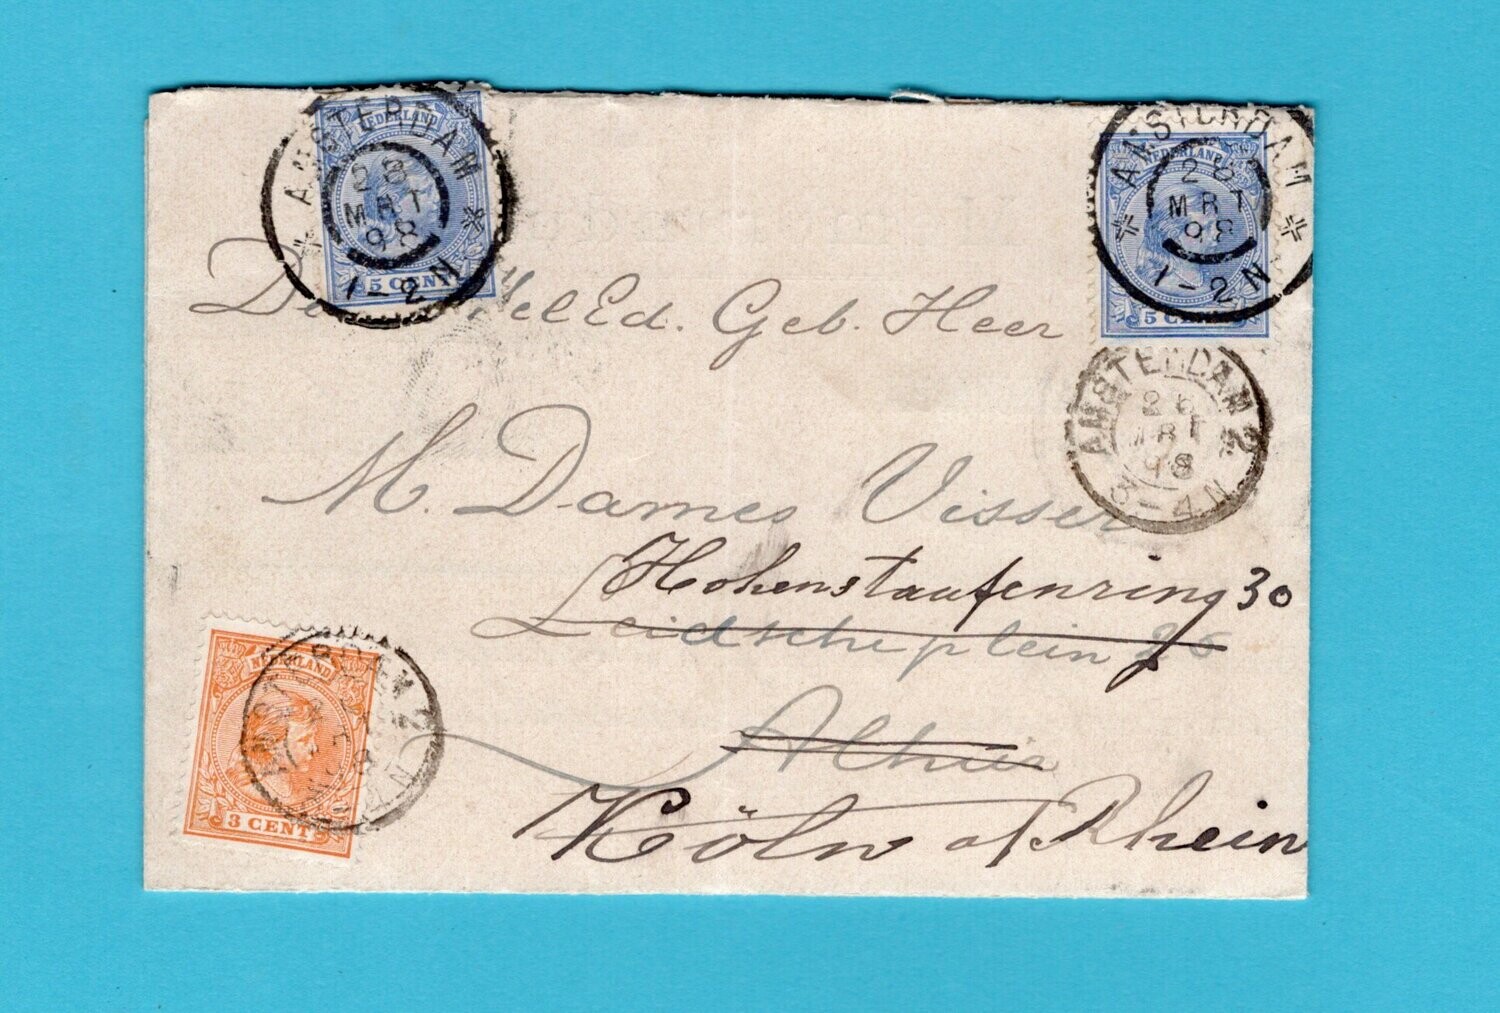 AMSTERDAM
28
MRT
98
1-2N
NEDERLAND
5 CENT
AMSTERDAM
28
MRT
98
1-2N
NEDERLAND
5 CENT
WelEd. Geb. Heer
AMSTERDAM 2
26
MRT
98
3-4N
M. Dames Visser
Hohenstaufenring 30
Leidscheplein 26
NEDERLAND
3 CENT
Alhier
Köln a/Rhein